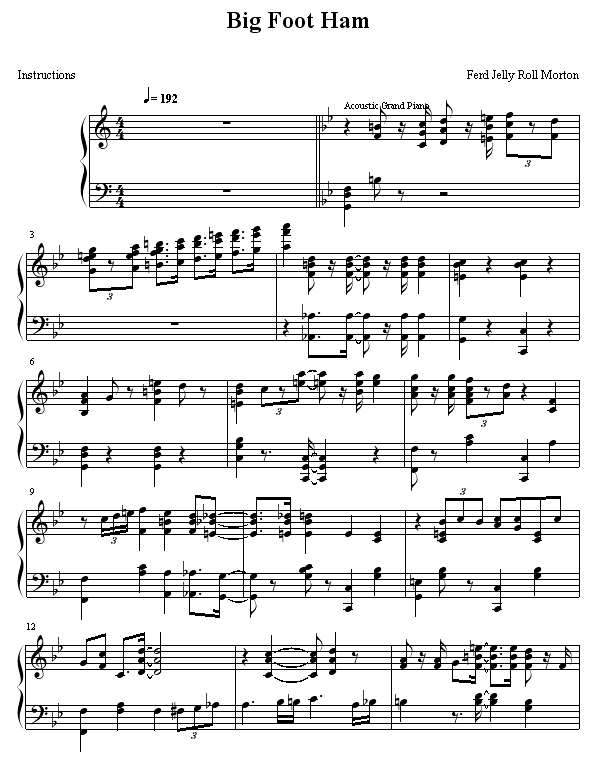 Big Foot Ham
Instructions
Ferd Jelly Roll Morton
♩= 192
Acoustic Grand Piano
4
4
4
4
3
3
3
3
6
3
3
9
3
3
12
3
3